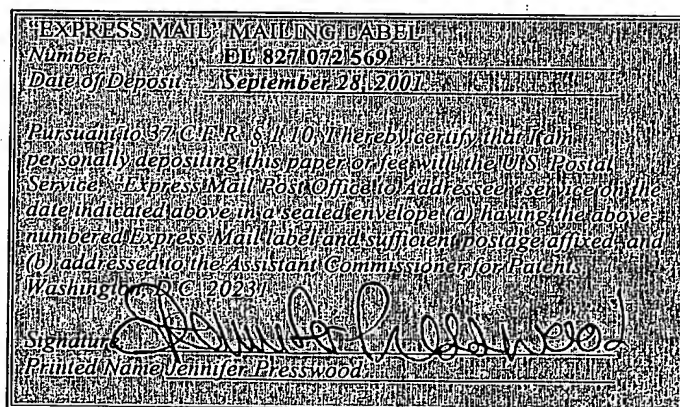 "EXPRESS MAIL" MAILING LABEL
Number: EL 827 072 569
Date of Deposit: September 28, 2001
Pursuant to 37 C.F.R. § 1.10, I hereby certify that I am
personally depositing this paper or fee with the U.S. Postal
Service "Express Mail Post Office to Addressee" service on the
date indicated above in a sealed envelope (a) having the above-
numbered Express Mail label and sufficient postage affixed, and
(b) addressed to the Assistant Commissioner for Patents,
Washington D.C. 20231
Signature Jennifer Presswood
Printed Name Jennifer Presswood